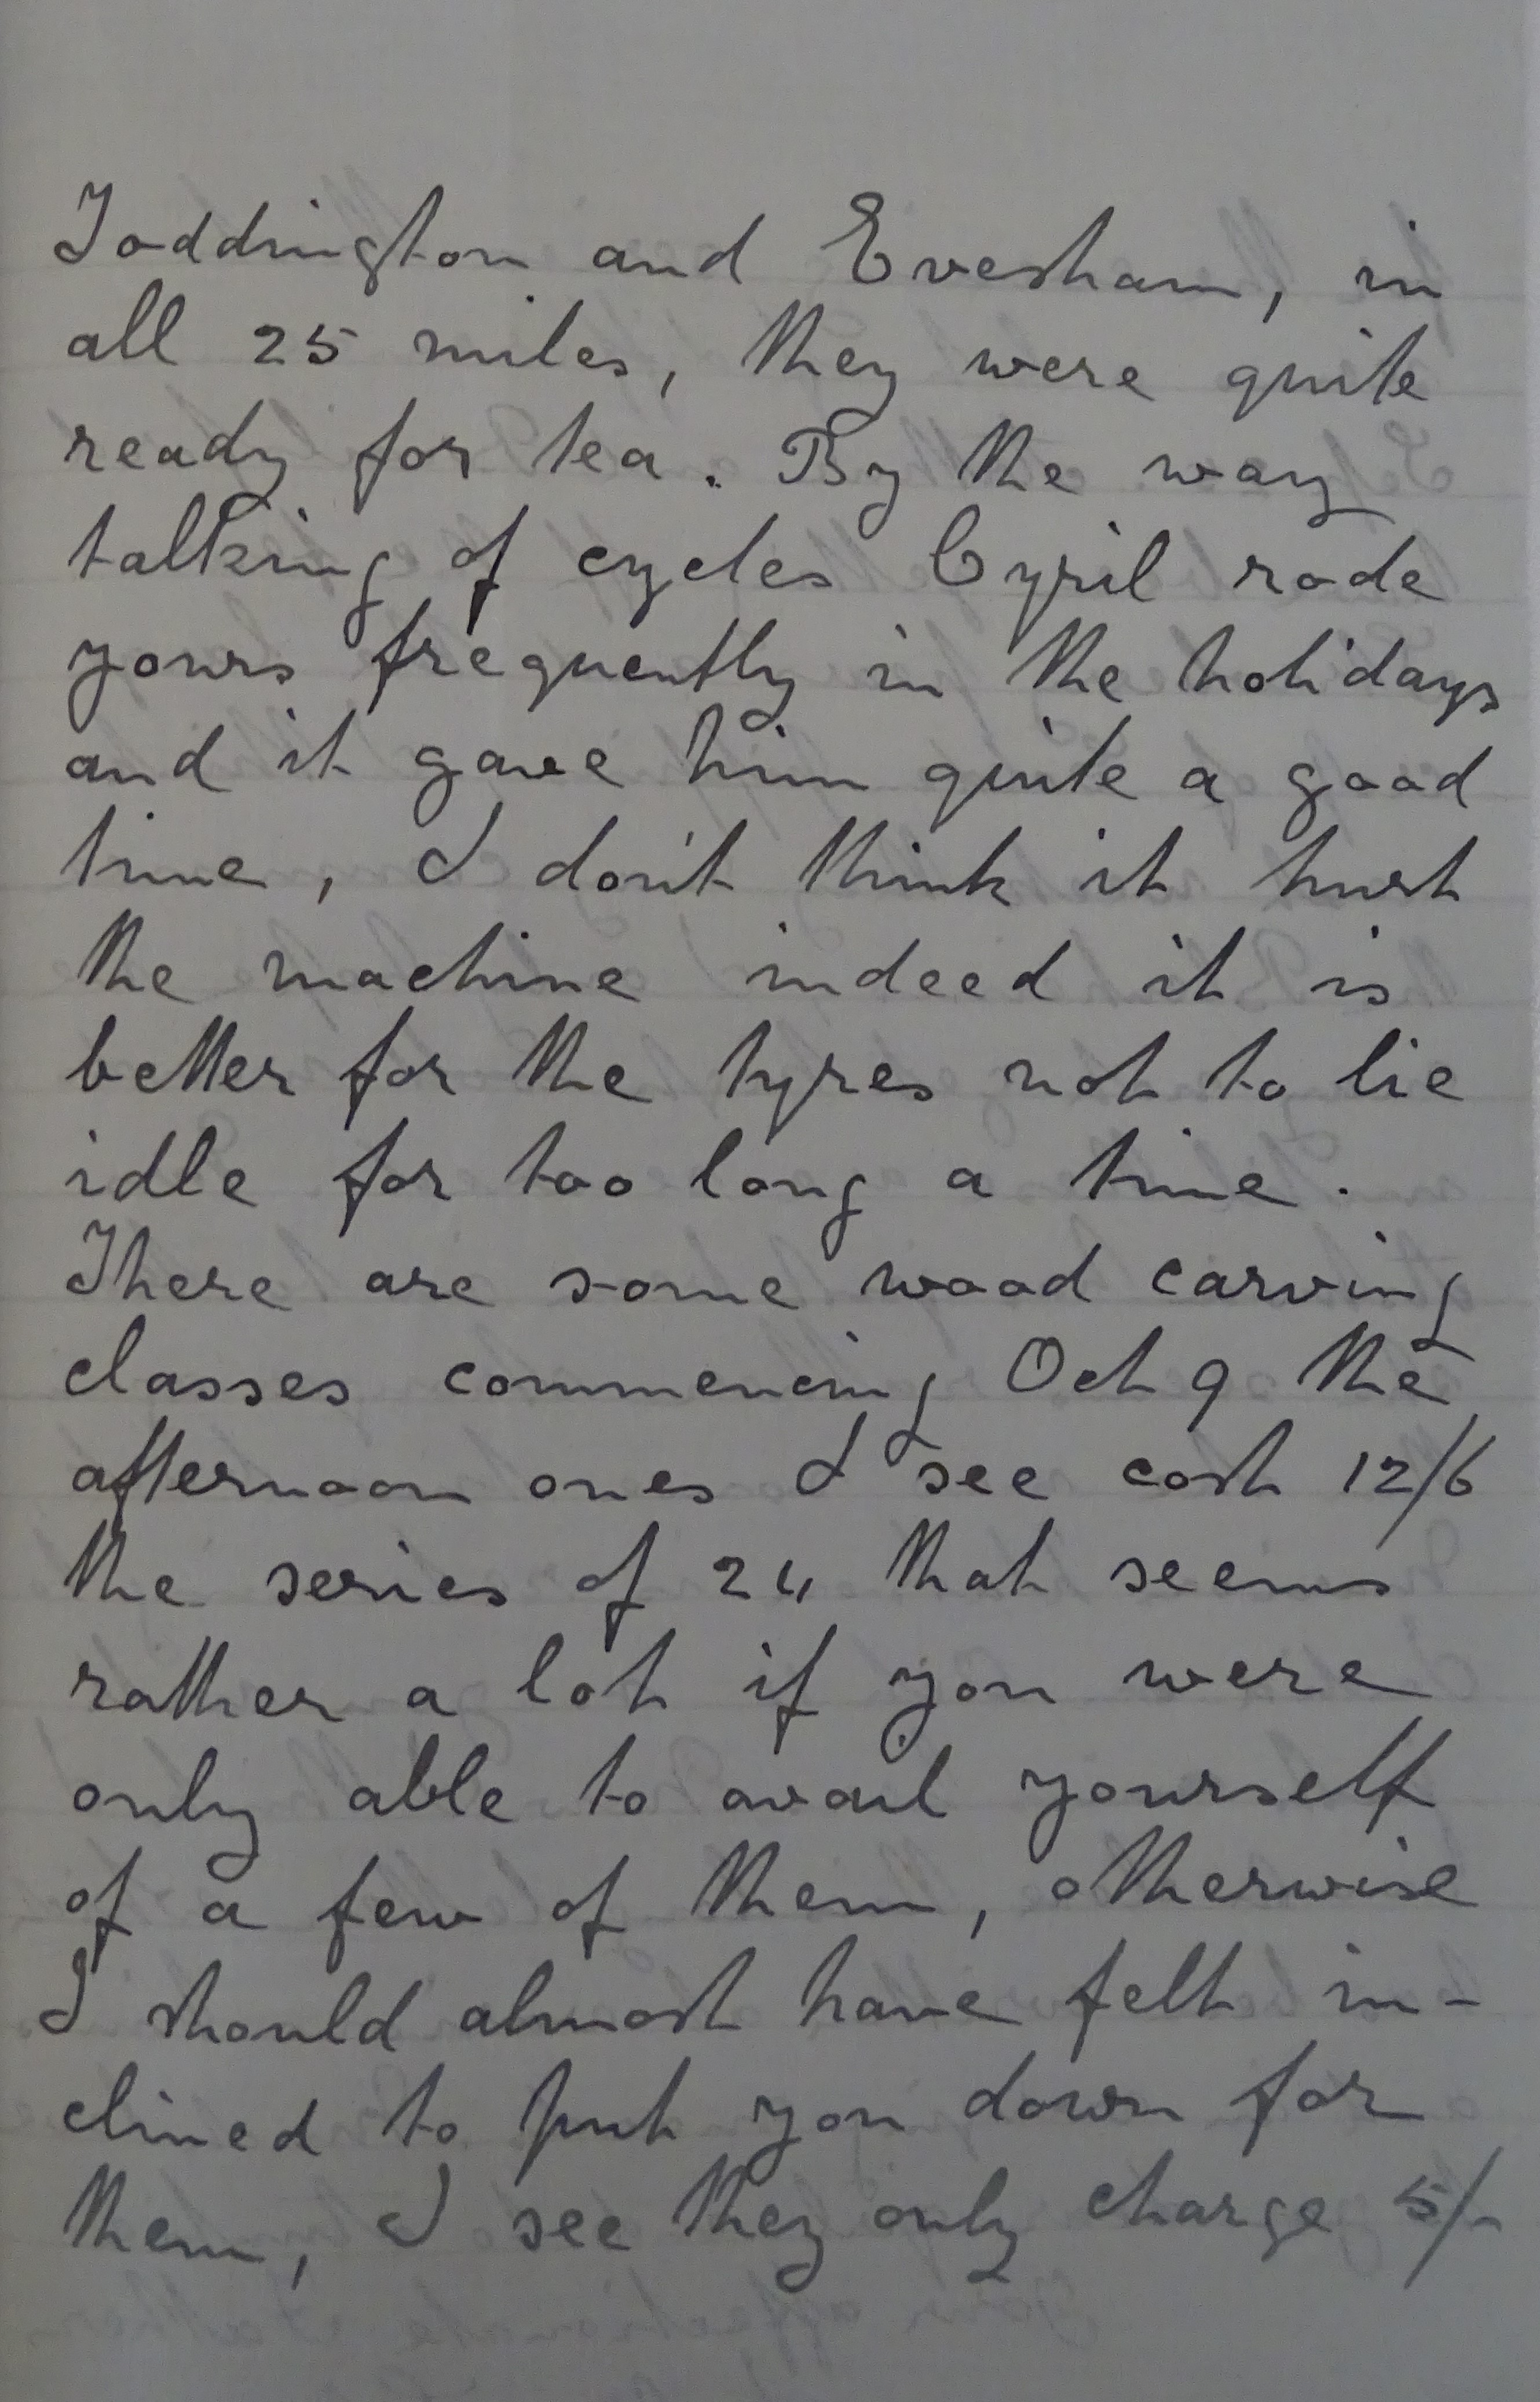 Toddington and Evesham, in
all 25 miles, they were quite
ready for tea. By the way
talking of cycles Cyril rode
yours frequently in the holidays
and it gave him quite a good
time, I don't think it hurt
the machine indeed it is
better for the tyres not to lie
idle for too long a time.
There are some wood carving
classes commencing Oct 9 the
afternoon ones I see cost 12/6
the series of 24 that seems
rather a lot if you were
only able to avail yourself
of a few of them, otherwise
I should almost have felt in-
clined to put you down for
them, I see they only charge 5/-